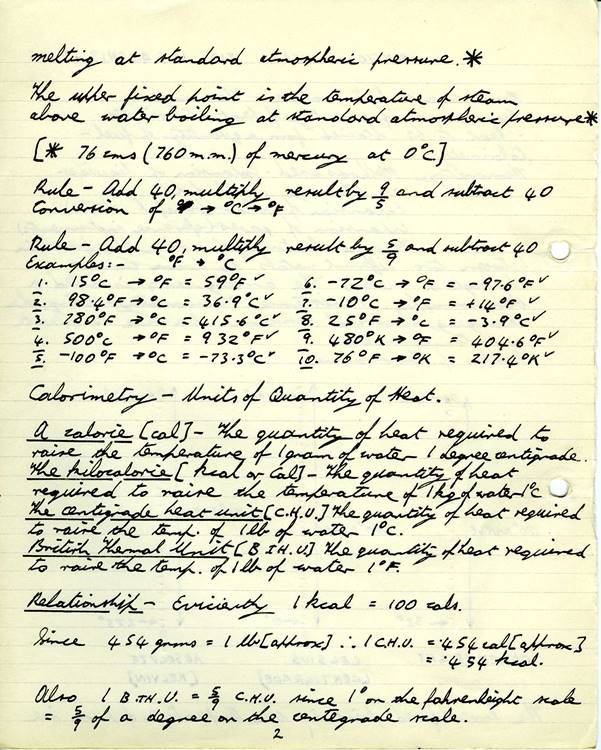 melting at standard atmospheric pressure.*
The upper fixed point is the temperature of steam
above water boiling at standard atmospheric pressure*
[* 76 cms (760 m.m.) of mercury at 0°C]
Rule - Add 40, multiply result by 9/5 and subtract 40
Conversion of °C → °F
Rule - Add 40, multiply result by 5/9 and subtract 40
Examples:- °F → °C
1. 15°C → °F = 59°F ✓ 6. -72°C → °F = -97.6°F ✓
2. 98.4°F → °C = 36.9°C ✓ 7. -10°C → °F = +14°F ✓
3. 780°F → °C = 415.6°C ✓ 8. 25°F → °C = -3.9°C ✓
4. 500°C → °F = 932°F ✓ 9. 480°K → °F = 404.6°F ✓
5. -100°F → °C = -73.3°C ✓ 10. 76°F → °K = 217.4°K ✓
Calorimetry - Units of Quantity of Heat.
A calorie [cal] - The quantity of heat required to
raise the temperature of 1 gram of water 1 degree centigrade.
The kilocalorie [kcal or Cal] - The quantity of heat
required to raise the temperature of 1 kg of water 1°C
The centigrade heat unit [C.H.U.] The quantity of heat required
to raise the temp. of 1 lb of water 1°C.
British Thermal Unit [B.TH.U] The quantity of heat required
to raise the temp. of 1 lb of water 1°F.
Relationship - Eviciently 1 kcal = 100 cals.
Since 454 grms = 1 lb [approx] ∴ 1 C.H.U. = 454 cal [approx]
= .454 kcal.
Also 1 B.TH.U. = 5/9 C.H.U. since 1° on the fahrenheight scale
= 5/9 of a degree on the centegrade scale.
2